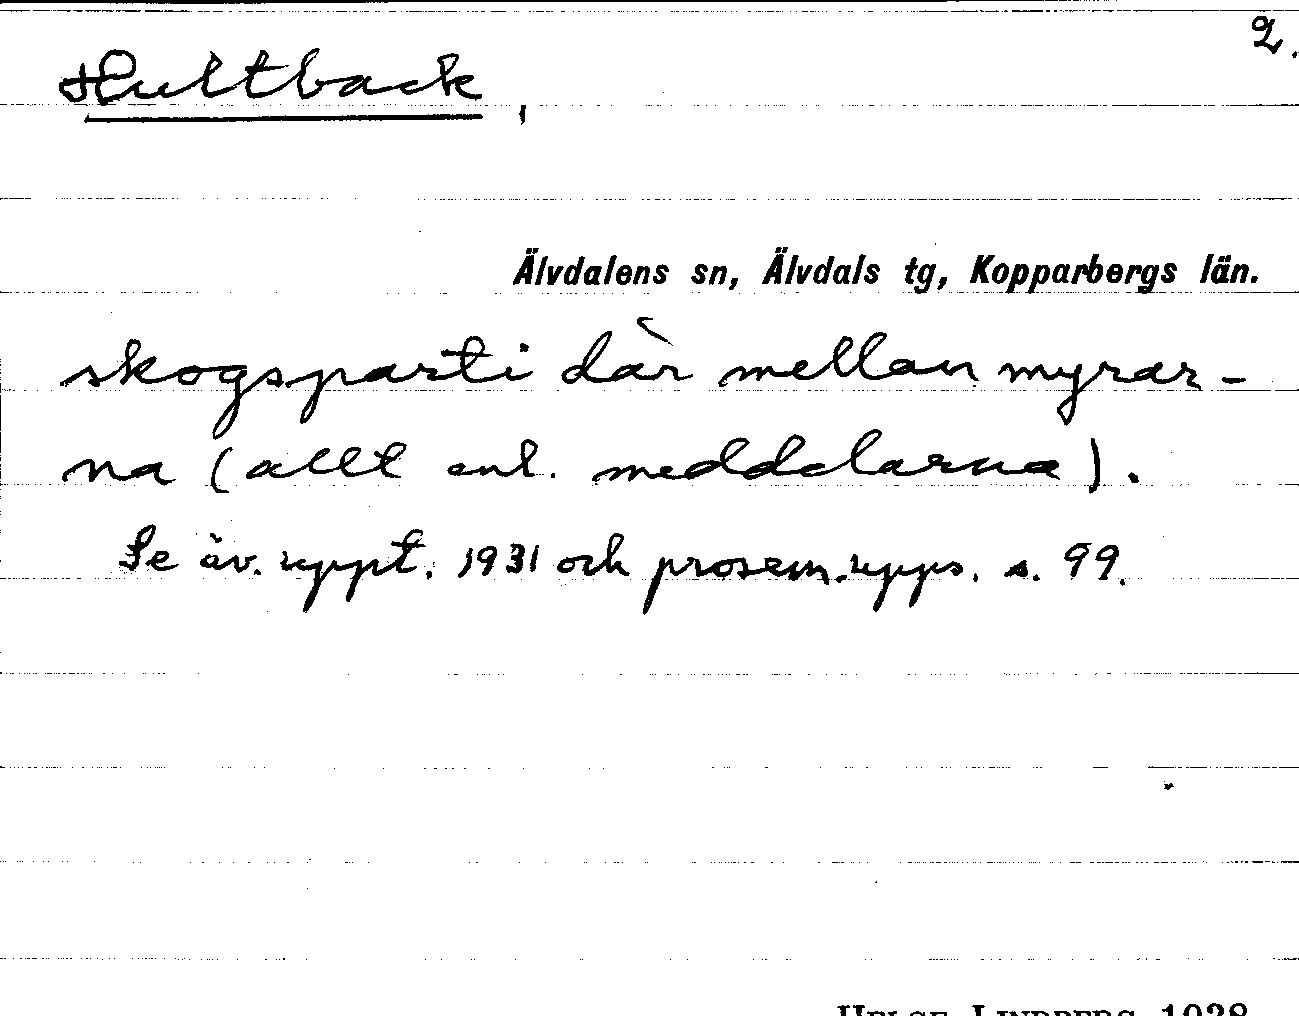 2.
Hultback,
Älvdalens sn, Älvdals tg, Kopparbergs län.
skogsparti där mellan myrar-
na (allt enl. meddelarna).
Se äv. uppt. 1931 och prosem.upps. s. 99.
HELGE LINDBERG 1938